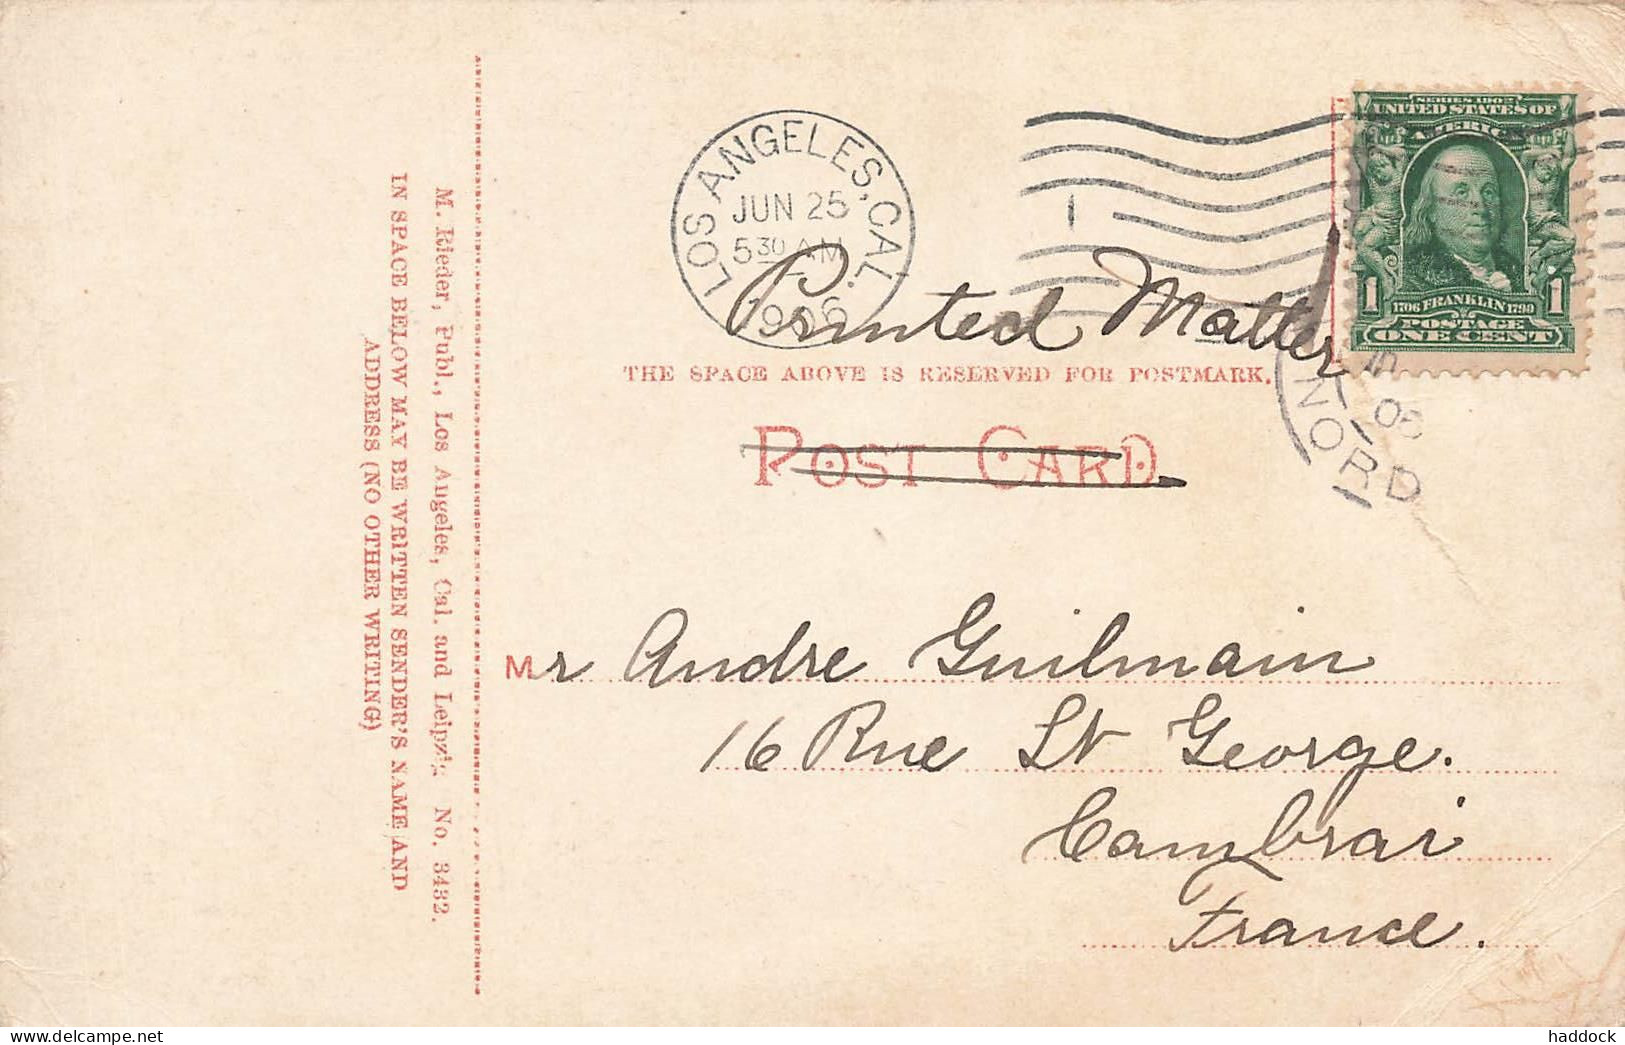 M. Rieder, Publ., Los Angeles, Cal. and Leipzig. No. 3432.
IN SPACE BELOW MAY BE WRITTEN SENDER'S NAME AND
ADDRESS (NO OTHER WRITING)
LOS ANGELES, CAL.
JUN 25
5 30 AM
1906
1
SERIES 1902
UNITED STATES OF
AMERICA
1 1706 FRANKLIN 1790 1
POSTAGE
ONE CENT
Printed Matter
THE SPACE ABOVE IS RESERVED FOR POSTMARK.
06
NORD
POST CARD
Mr Andre Guilmain
16 Rue St George.
Cambrai
France.
haddock